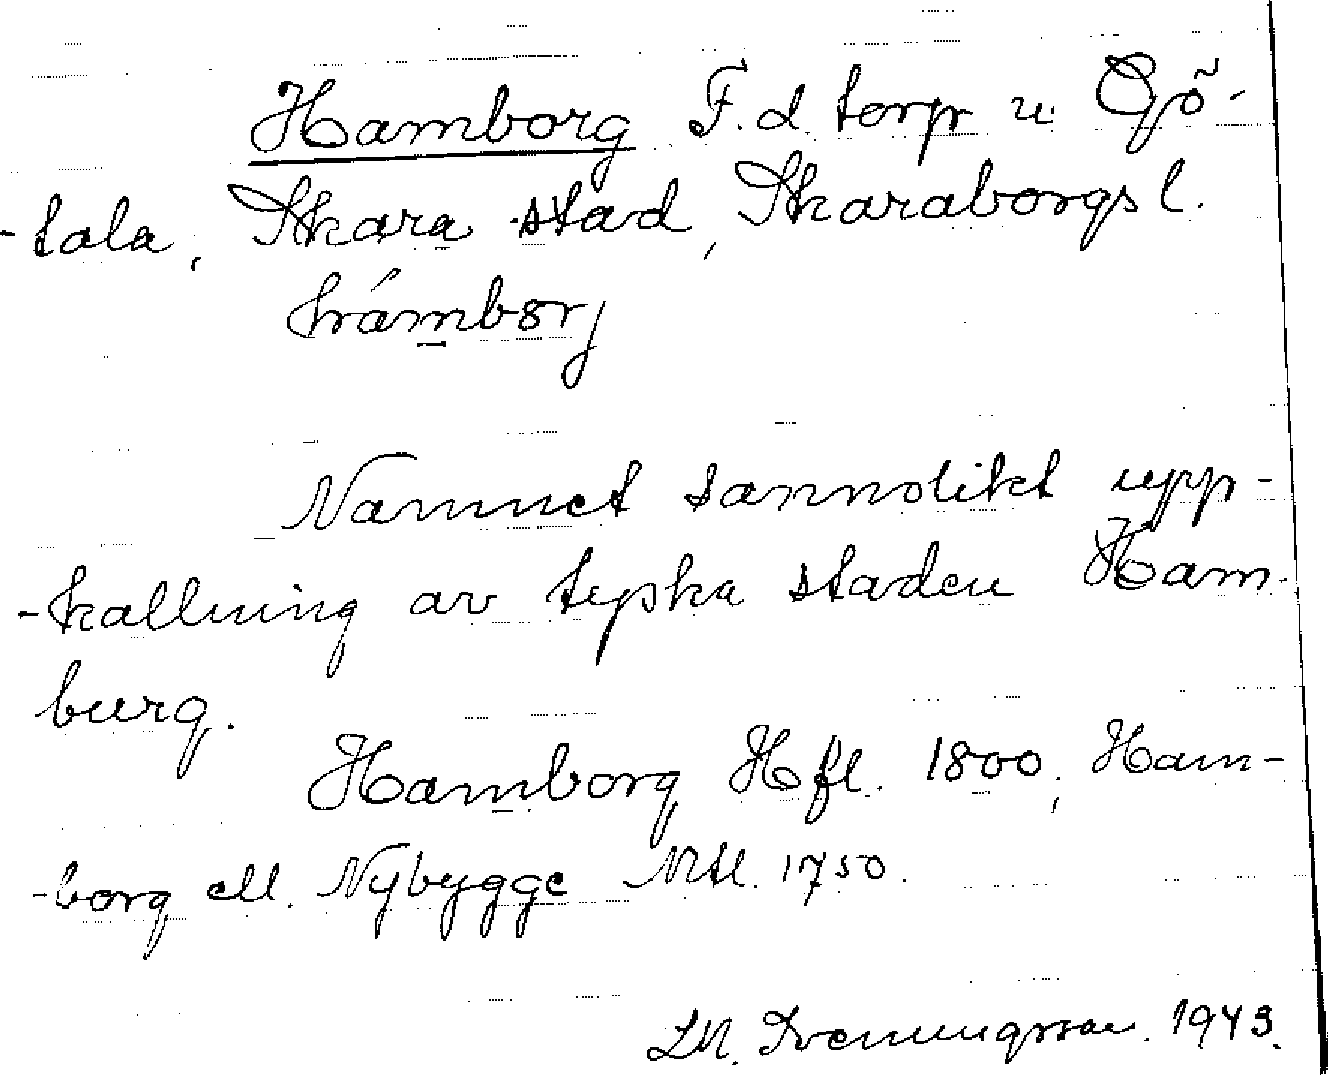 Hamborg F.d. torp u. Gö-
-tala, Skara stad, Skaraborgs l.
hámborj
Namnet sannolikt upp-
-kallning av tyska staden Ham-
burg.
Hamborg Hfl. 1800, Ham-
-borg ell. Nybygge Mtl. 1750.
Svenungsson. 1943.